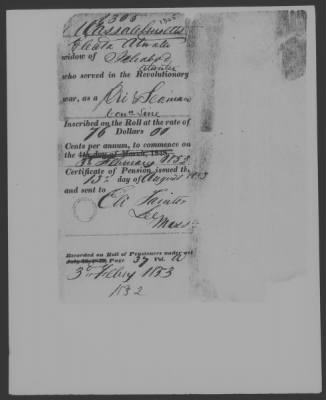 1305
Massachusetts
Electa Atwater
widow of Ichabod
Atwater
who served in the Revolutionary
war, as a Pri & Seaman
Conn Line
Inscribed on the Roll at the rate of
76 Dollars 00
Cents per annum, to commence on
the 4th day of March, 1848,
3d February 1853
Certificate of Pension issued the
13th day of August 1853
and sent to
Lee
Mass
Recorded on Roll of Pensioners under act
Page 37 Vol.
3d Feby 1853